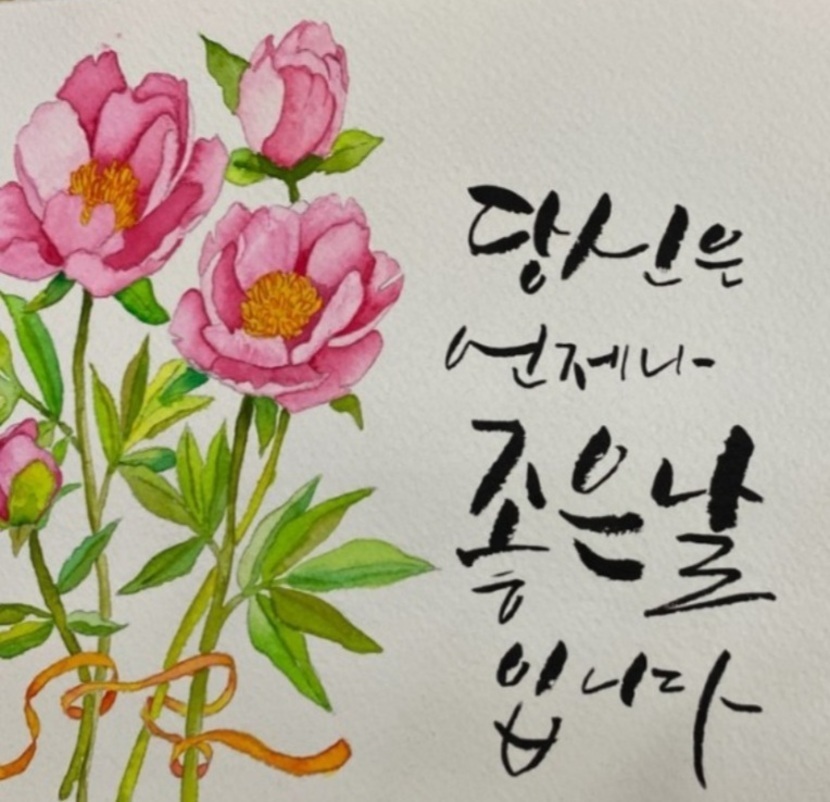 당신은
언제나
좋은날
입니다